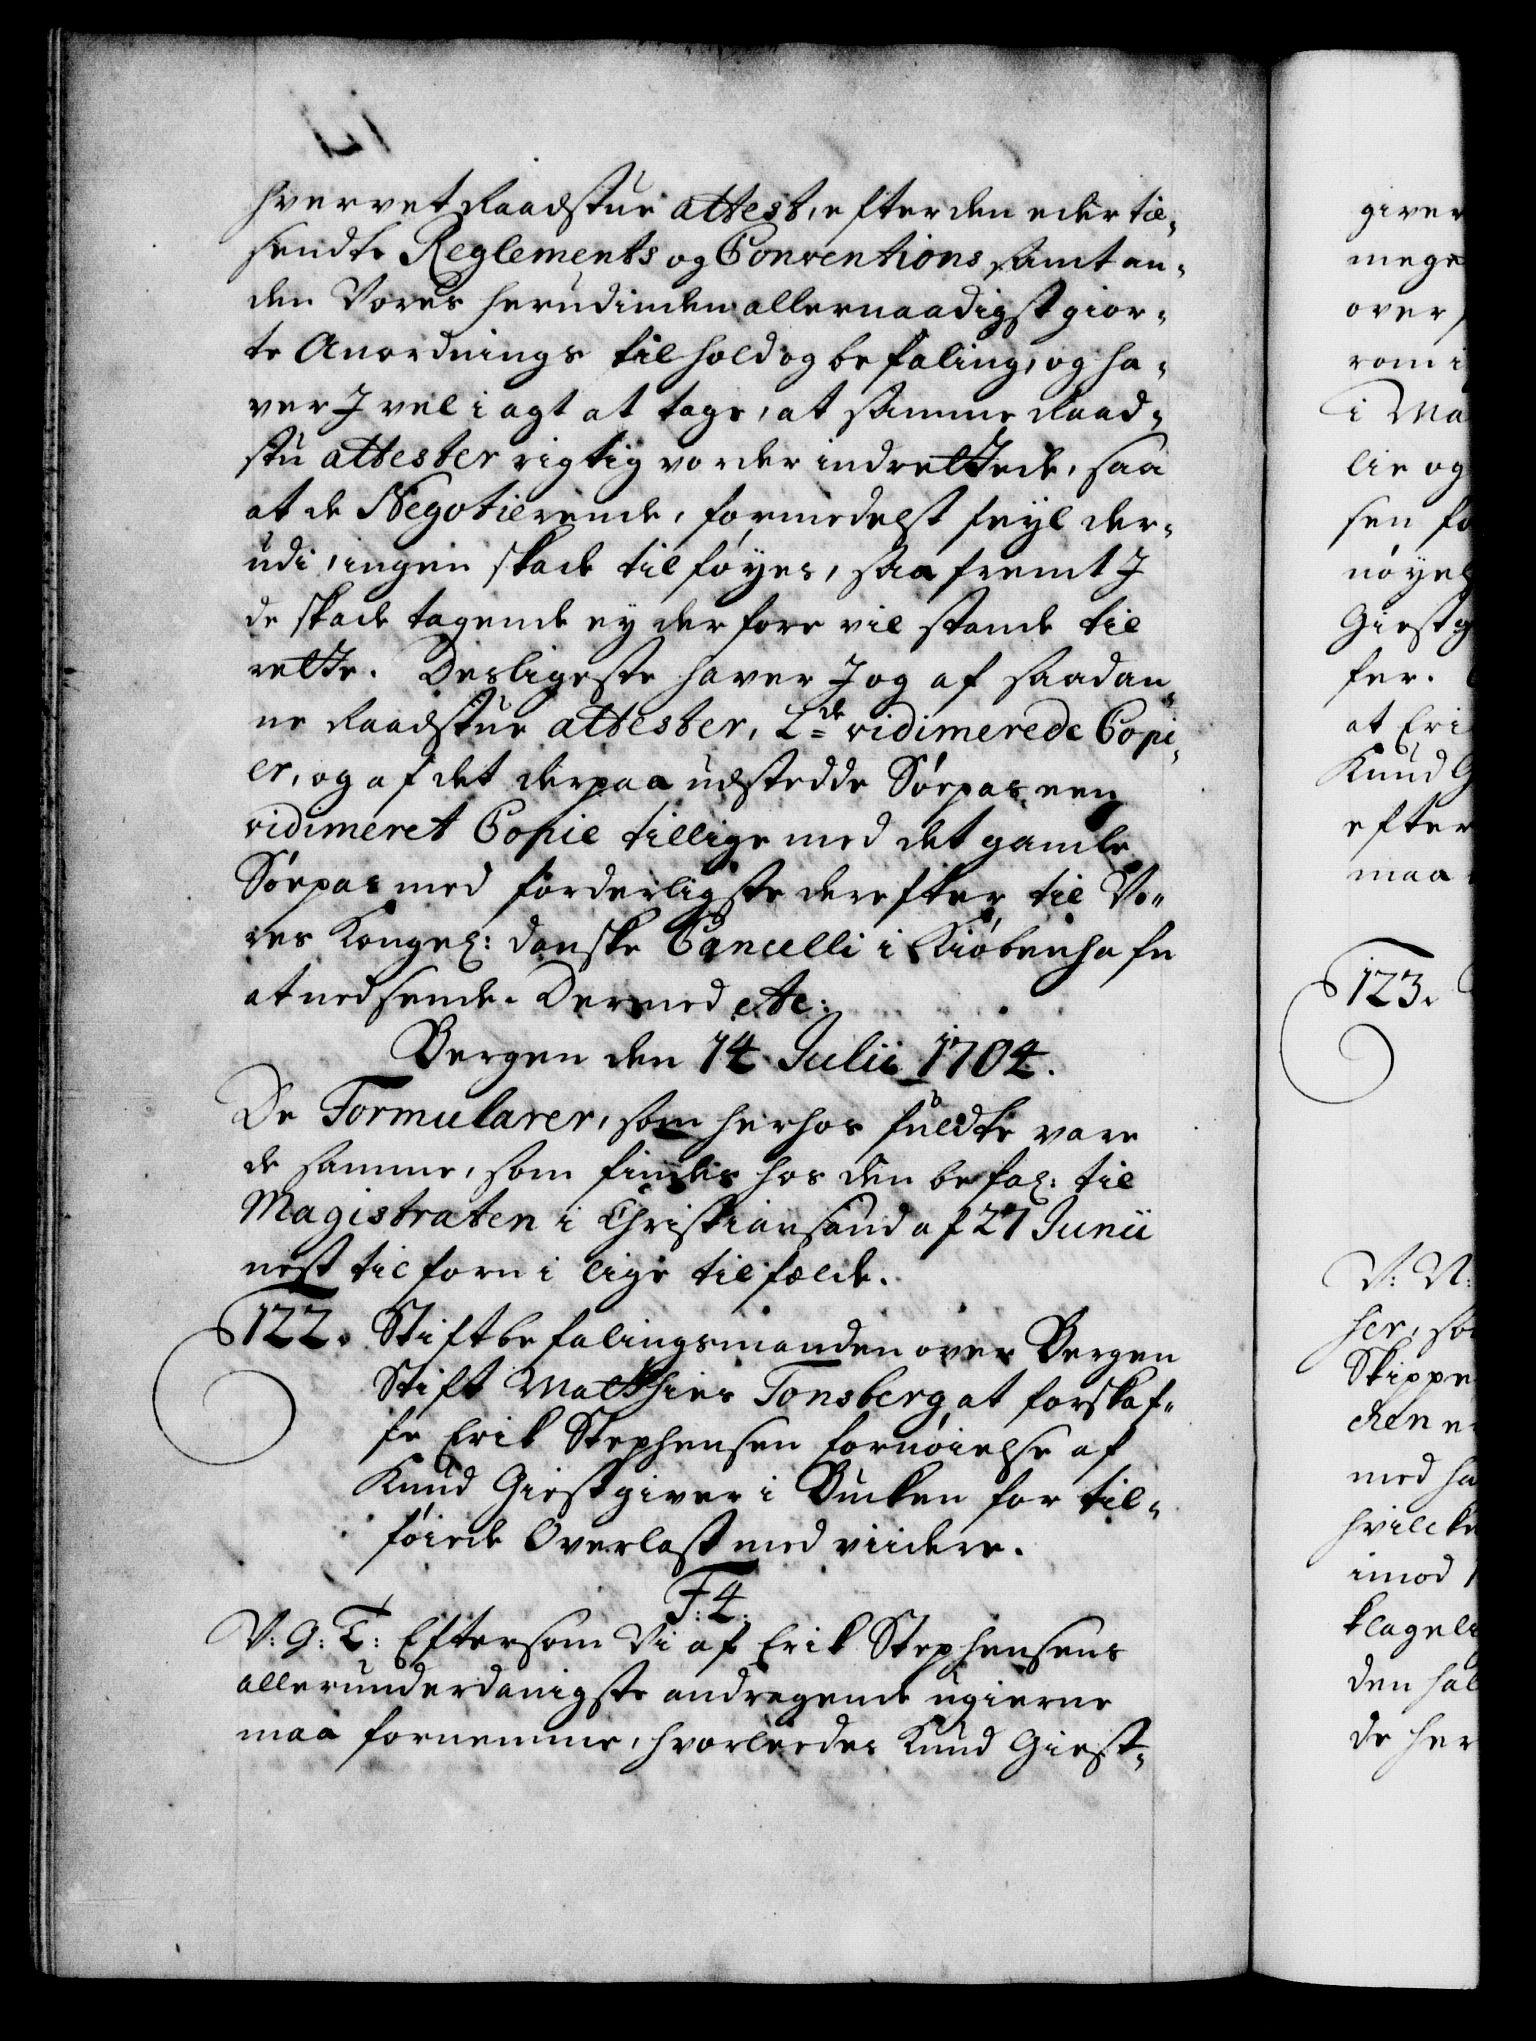 hvervet Raadstue attest, efter den eder til-
sendte Reglements og Conventions samt an-
den Vores herudinden allernaadigst gior-
te Anordnings tilhold og befaling, og ha-
ver I vel i agt at tage, at samme Raad-
stu attester rigtig vorder indrettede, saa
at de Negotierende, formedelst feyl der-
udi, ingen skade tilføyes, saafremt I
de skade tagende ey derfore vil stande til
rette. Desligeste haver I og af saadan-
ne Raadstue attester, 2de vidimerede Copi-
er, og af det derpaa udstedde Søepas een
vidimeret Copie tillige med det gamle
Søepas med forderligste derefter til Vo-
res Kongel: danske Cancelli i Kiøbenhafn
at nedsende. Dermed etc:
Bergen den 14 Julii 1704.
De Formularer, som herhos fuldte vare
de samme, som findes hos den befal: til
Magistraten i Christiansand af 27 Junii
nest tilforn i lige tilfælde.
122. Stiftbefalingsmanden over Bergen
Stift Matthies Tonsberg at forskaf-
fe Erik Stephensen fornøielse af
Knud Giestgiver i Bucken for til-
føiede Overlast med viidere.
F: 4.
V: G: T: Eftersom Vi af Erik Stephensens
allerunderdanigste andragende ugierne
maa fornemme, hvorledes Knud Giest-
giver
over
i Ma
lie og
sen fo
nøyel
Giestg
fer.
at Eri
Knud G
efter
maa
123.
V: N:
her, so
Skippe
med ha
hvilcke
imod
klagel
den hal
de her